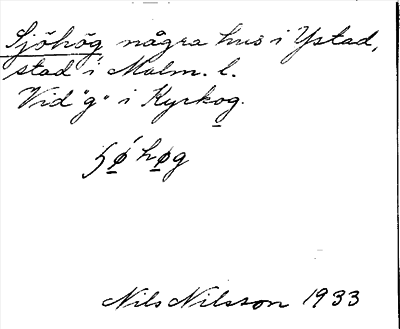 Sjöhög några hus i Ystad,
stad i Malm. l.
Vid "g" i Kyrkog.
Nils Nilsson 1933